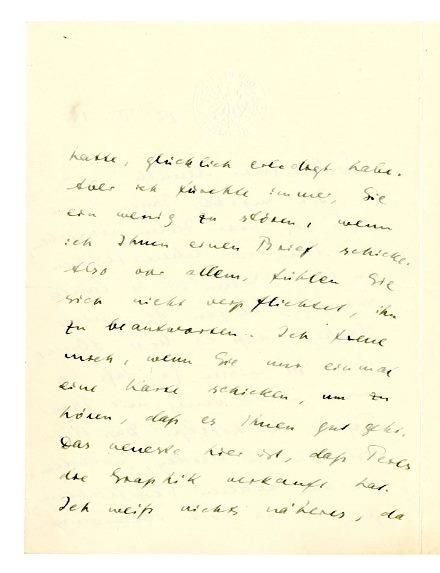 hatte, glücklich erledigt habe.
Aber ich fürchte immer, Sie
ein wenig zu stören, wenn
ich Ihnen einen Brief schicke.
Also vor allem, fühlen Sie
sich nicht verpflichtet, ihn
zu beantworten. Ich freue
mich, wenn Sie nur einmal
eine Karte schicken, um zu
hören, daß es Ihnen gut geht.
Das neueste hier ist, daß
die Graphik verkauft hat.
Ich weiß nichts näheres, da